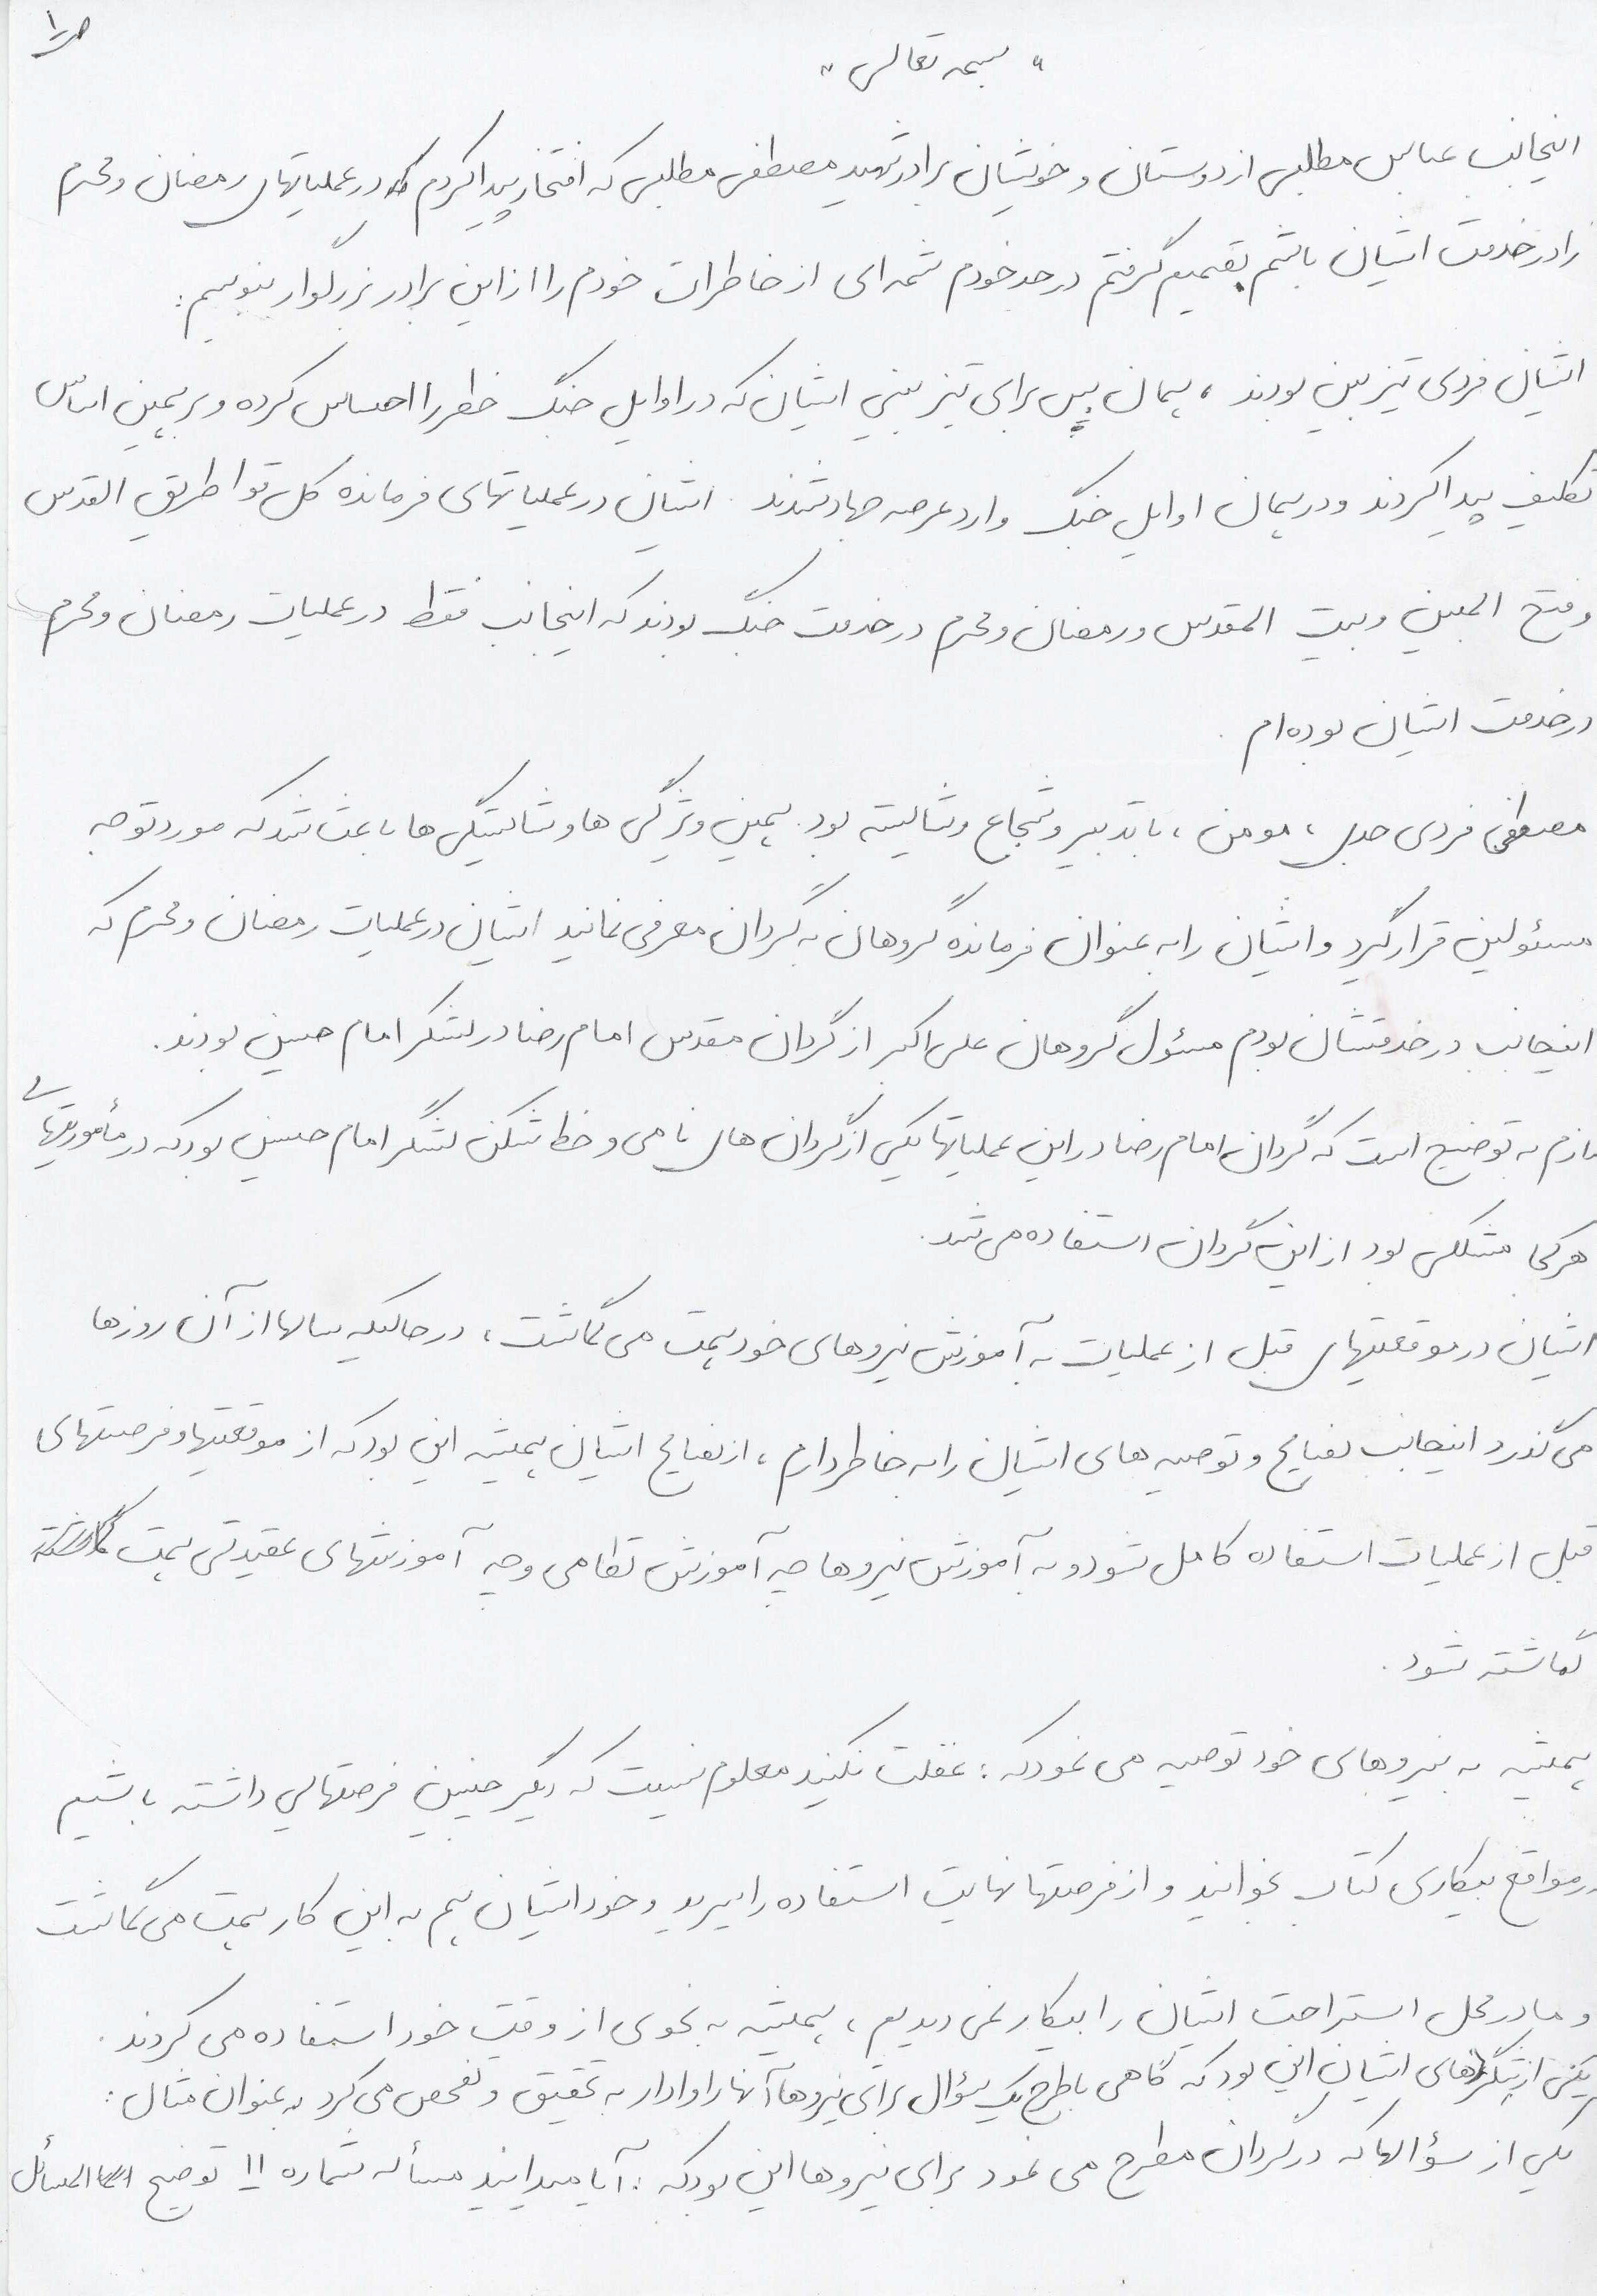 ص ۱
" بسمه تعالی "
اینجانب عباس مطلبی از دوستان و خویشان برادر شهید مصطفی مطلبی که افتخار پیدا کردم که در عملیاتهای رمضان و محرم
را در خدمت ایشان باشم تصمیم گرفتم در حد خودم شمه ای از خاطرات خودم را از این برادر بزرگوار بنویسم :
ایشان فردی تیزبین بودند ، بهمان پس برای تیزبینی ایشان که در اوایل جنگ خطر را احساس کرده و بر همین اساس
تکلیف پیدا کردند و در همان اوایل جنگ وارد عرصه جهاد شدند . ایشان در عملیاتهای فرمانده کل قوا طریق القدس
و فتح المبین و بیت المقدس و رمضان و محرم در خدمت جنگ بودند که اینجانب فقط در عملیات رمضان و محرم
در خدمت ایشان بوده ام .
مصطفی فردی ، مومن ، با تدبیر و شجاع و شایسته بود . همین ویژگی ها و شایستگی ها باعث شد که مورد توجه
مسئولین قرار گیرد و ایشان را به عنوان فرمانده گروهان به گردان معرفی نمایند ایشان در عملیات رمضان و محرم که
اینجانب در خدمتشان بودم مسئول گروهان علی اکبر از گردان مقدس امام رضا در لشکر امام حسین بودند .
لازم به توضیح است که گردان امام رضا در این عملیاتها یکی از گردان های نامی و خط شکن لشگر امام حسین بود که در مأموریتهایی
هر کجا مشکلی بود از این گردان استفاده می شد .
ایشان در موقعیتهای قبل از عملیات به آموزش نیروهای خود همت می گماشت ، در حالیکه سالها از آن روزها
می گذرد اینجانب نصایح و توصیه های ایشان را به خاطر دارم ، از نصایح ایشان همیشه این بود که از موقعیتها و فرصتهای
قبل از عملیات استفاده کامل شود و به آموزش نیروها چه آموزش نظامی و چه آموزشهای عقیدتی همت
گماشته شود .
همیشه به نیروهای خود توصیه می نمود که : غفلت نکنید معلوم نیست که دیگر چنین فرصتهایی داشته باشیم
در مواقع بیکاری کتاب بخوانید و از فرصتها نهایت استفاده را ببرید و خود ایشان هم به این کار همت می گماشت
و ما در محل استراحت ایشان را بیکار نمی دیدیم ، همیشه به نحوی از وقت خود استفاده می کردند .
یکی از شگردهای ایشان این بود که گاهی با طرح یک سؤال برای نیروها آنها را وادار به تحقیق و تفحص می کرد به عنوان مثال :
یکی از سؤالها که در گردان مطرح می نمود برای نیروها این بود که : آیا میدانید مسأله شماره ۱۱ توضیح المسائل